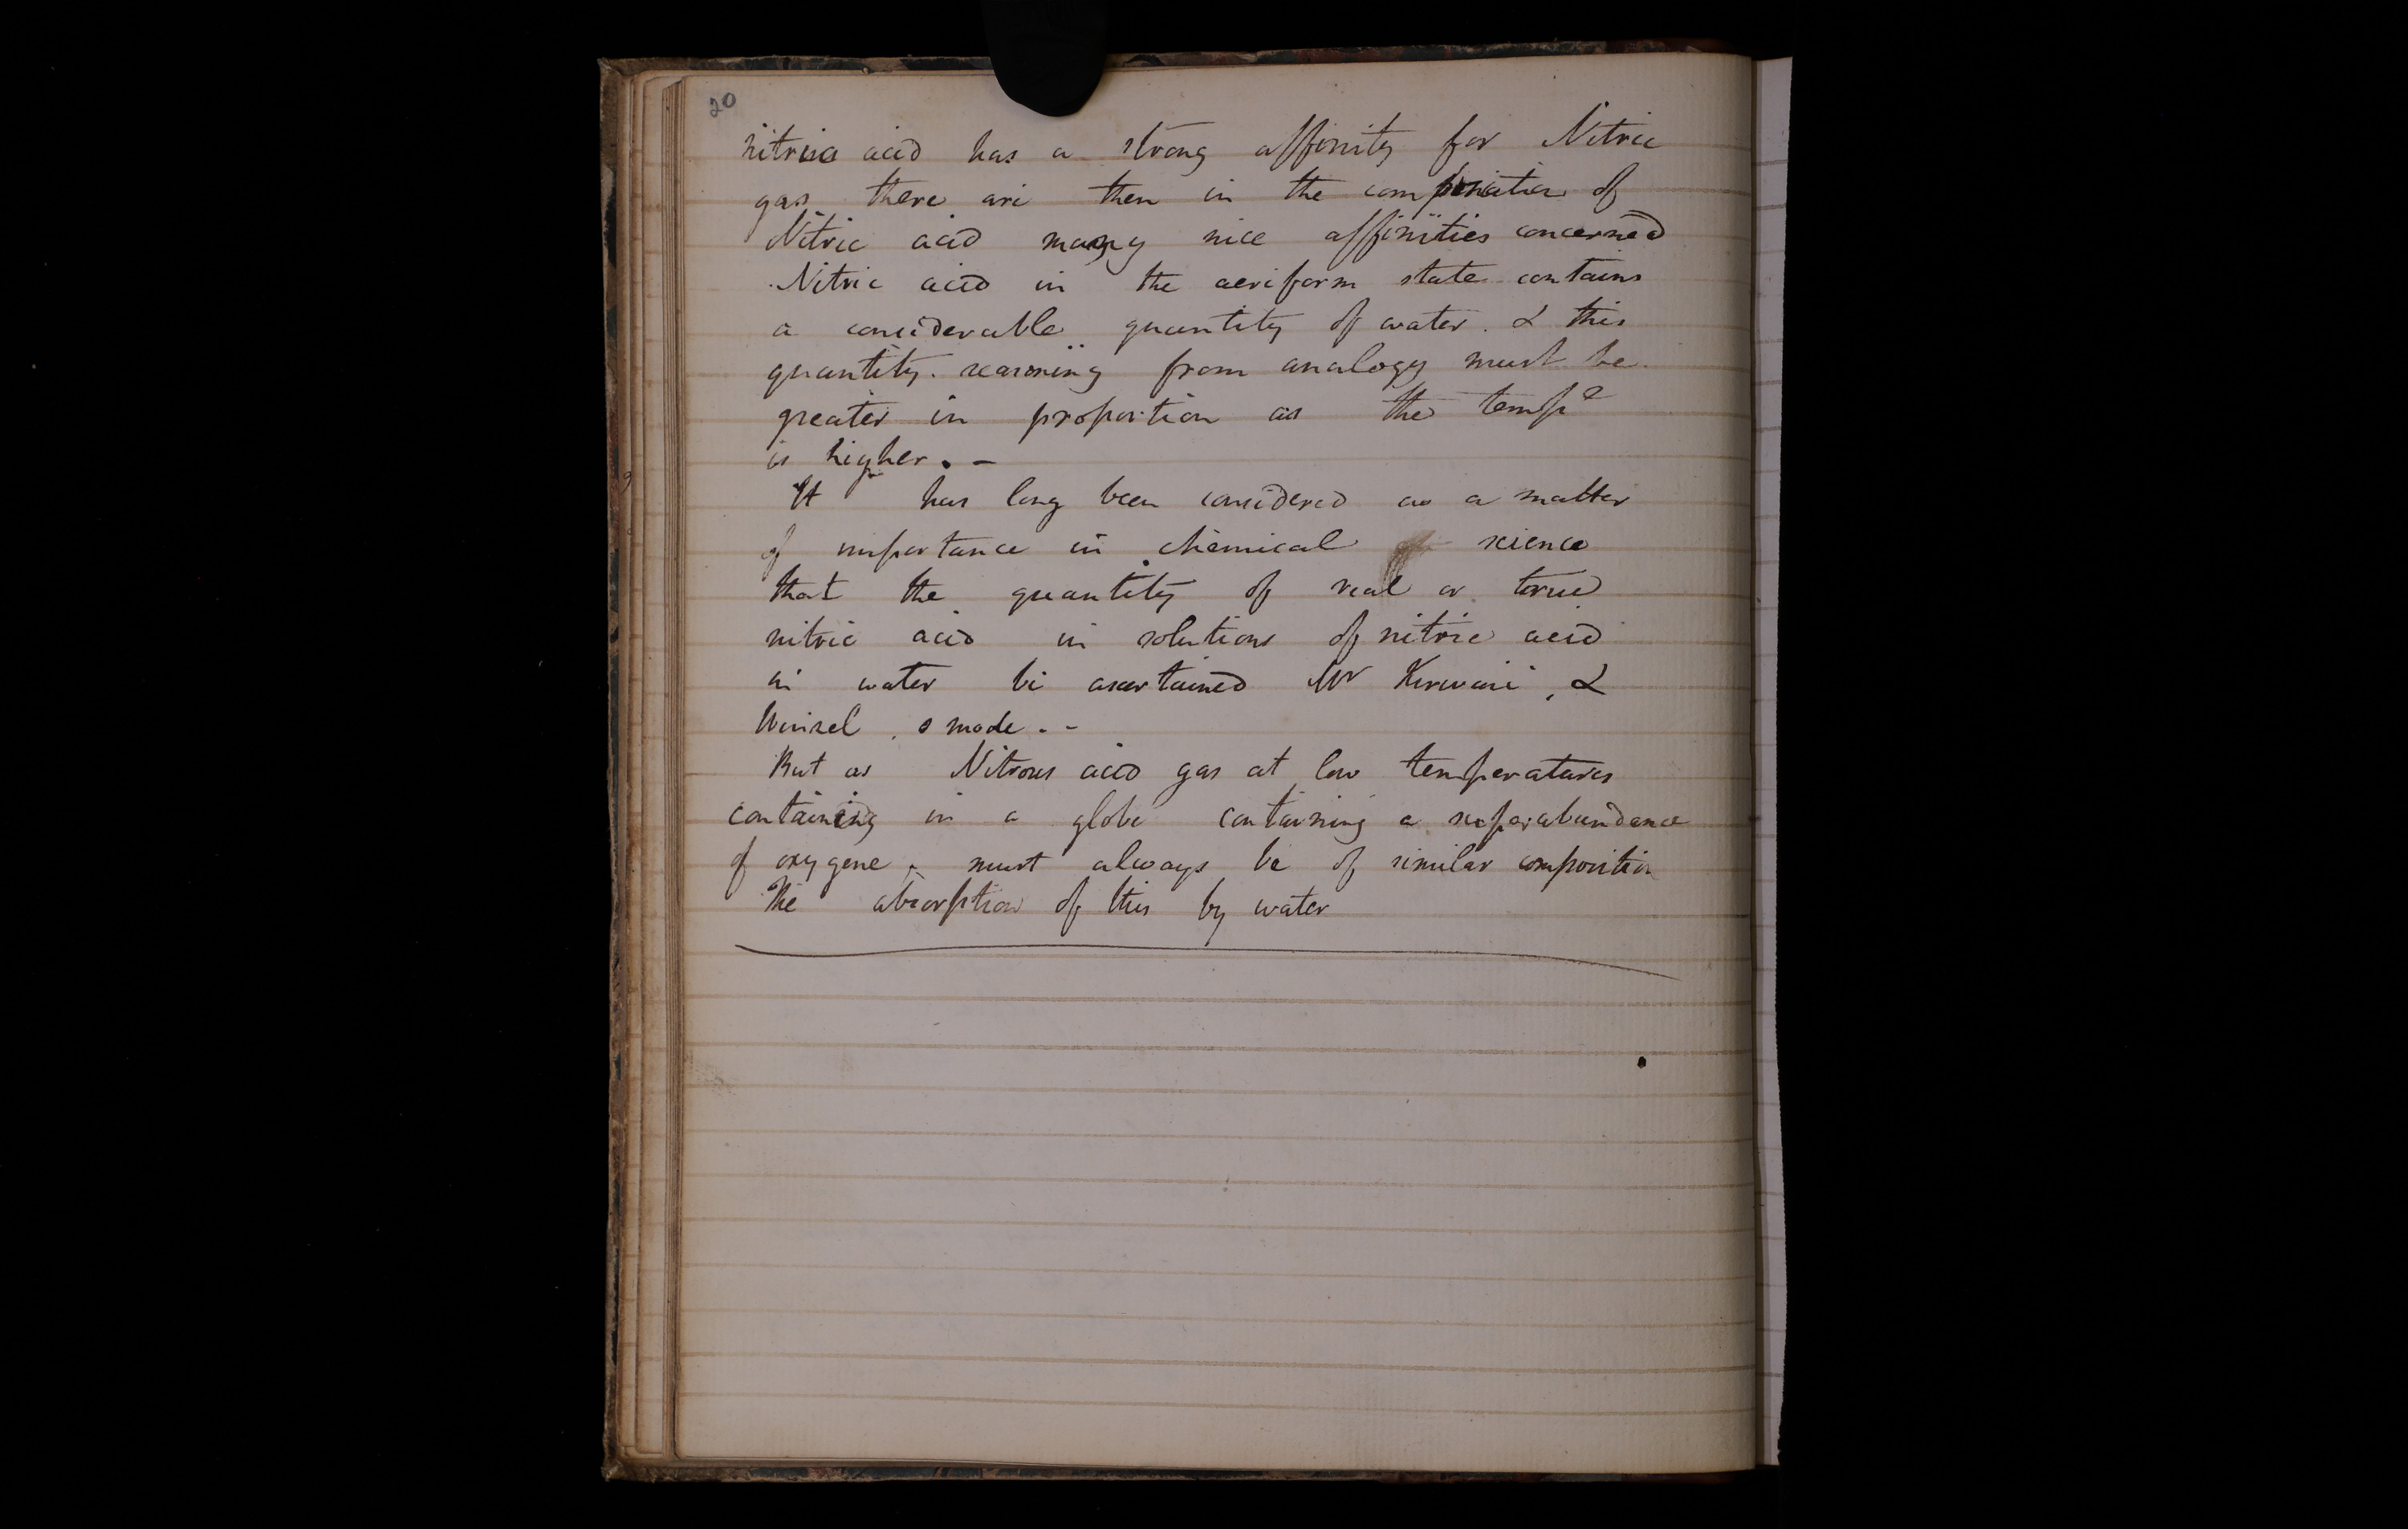 20
nitric acid has a strong affinity for Nitric
gas there are then in the composition of
Nitric acid many nice affinities concerned
Nitric acid in the aeriform state contains
a considerable quantity of water. & this
quantity. reasoning from analogy must be
greater in proportion as the temp^e
is higher. -
It has long been considered as a matter
of importance in chemical science
that the quantity of real or true
nitric acid in solutions of nitric acid
in water be ascertained Mr Kirwan, &
Wenzel, s made. -
But as Nitrous acid gas at low temperatures
containing in a globe containing a superabundance
of oxygene, must always be of similar composition
The absorption of this by water